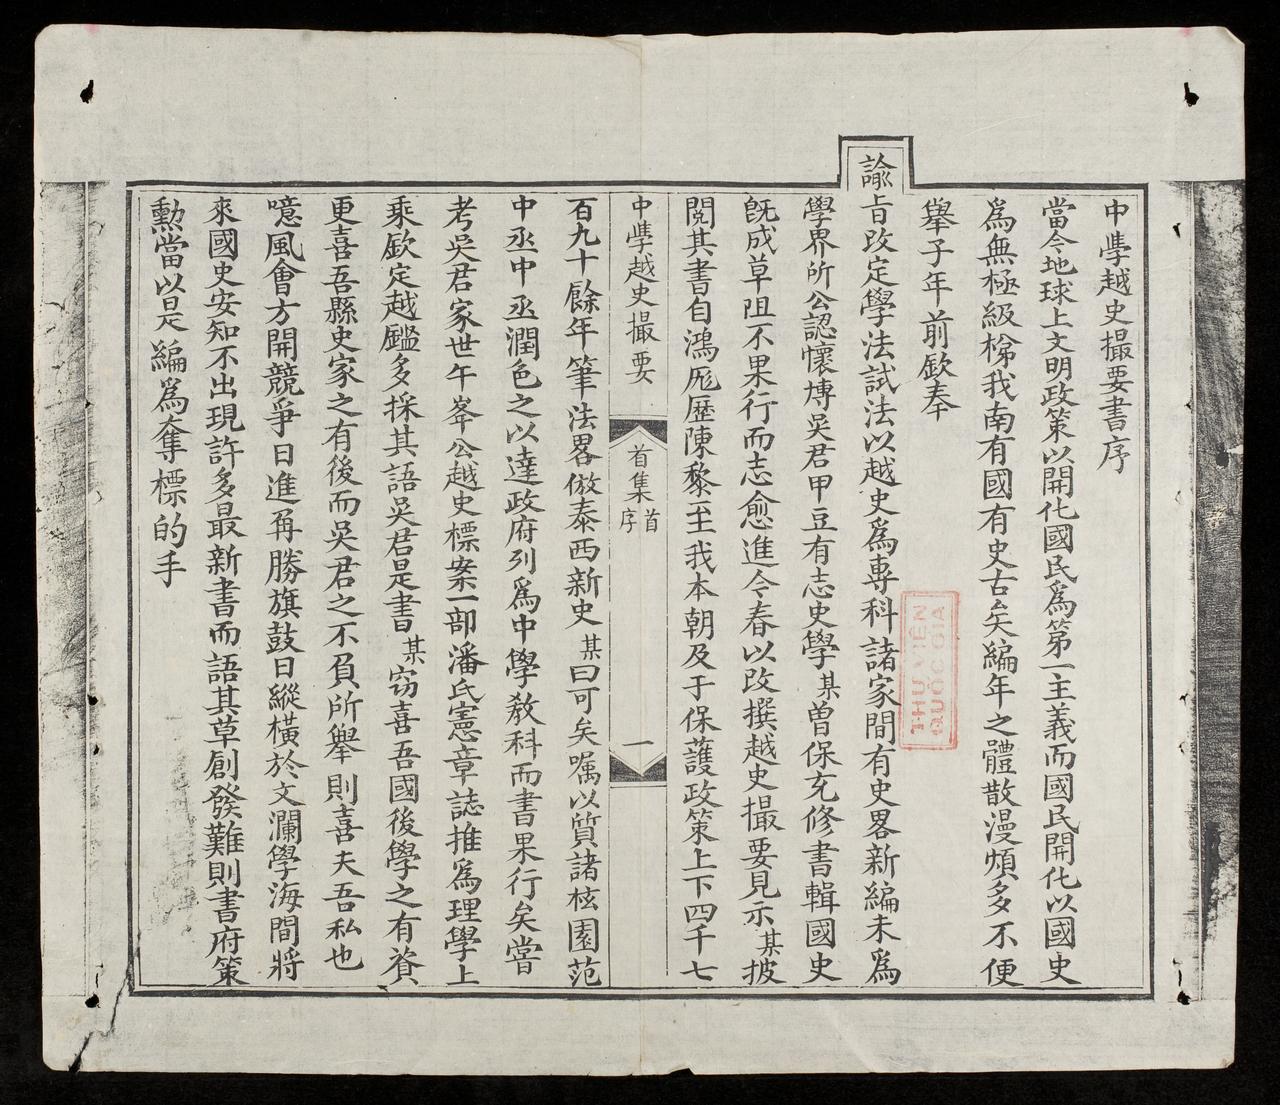 中學越史撮要書序
當今地球上文明政策以開化國民爲第一主義而國民開化以國史
爲無極級梯我南有國有史古矣編年之體散漫煩多不便
舉子年前欽奉
諭旨改定學法試法以越史爲專科諸家間有史畧新編未爲
學界所公認懷慱吳君甲豆有志史學某曽保充修書輯國史
旣成草阻不果行而志愈進今春以改撰越史撮要見示某披
閱其書自鴻厖歷陳黎至我本朝及于保護政策上下四千七
中學越史撮要
首集 首序
一
百九十餘年筆法畧倣泰西新史某曰可矣嘱以質諸桉園范
中丞中丞潤色之以達政府列爲中學教科而書果行矣嘗
考吳君家世午峯公越史標案一部潘氏憲章誌推爲理學上
乘欽定越鑑多採其語吳君是書某窃喜吾國後學之有資
更喜吾縣史家之有後而吳君之不負所舉則喜夫吾私也
噫風會方開競爭日進再勝旗鼓日縱橫於文瀾學海間將
來國史安知不出現許多最新書而語其草創發難則書府策
勳當以是編爲奪標的手
THƯ VIỆN
QUỐC GIA